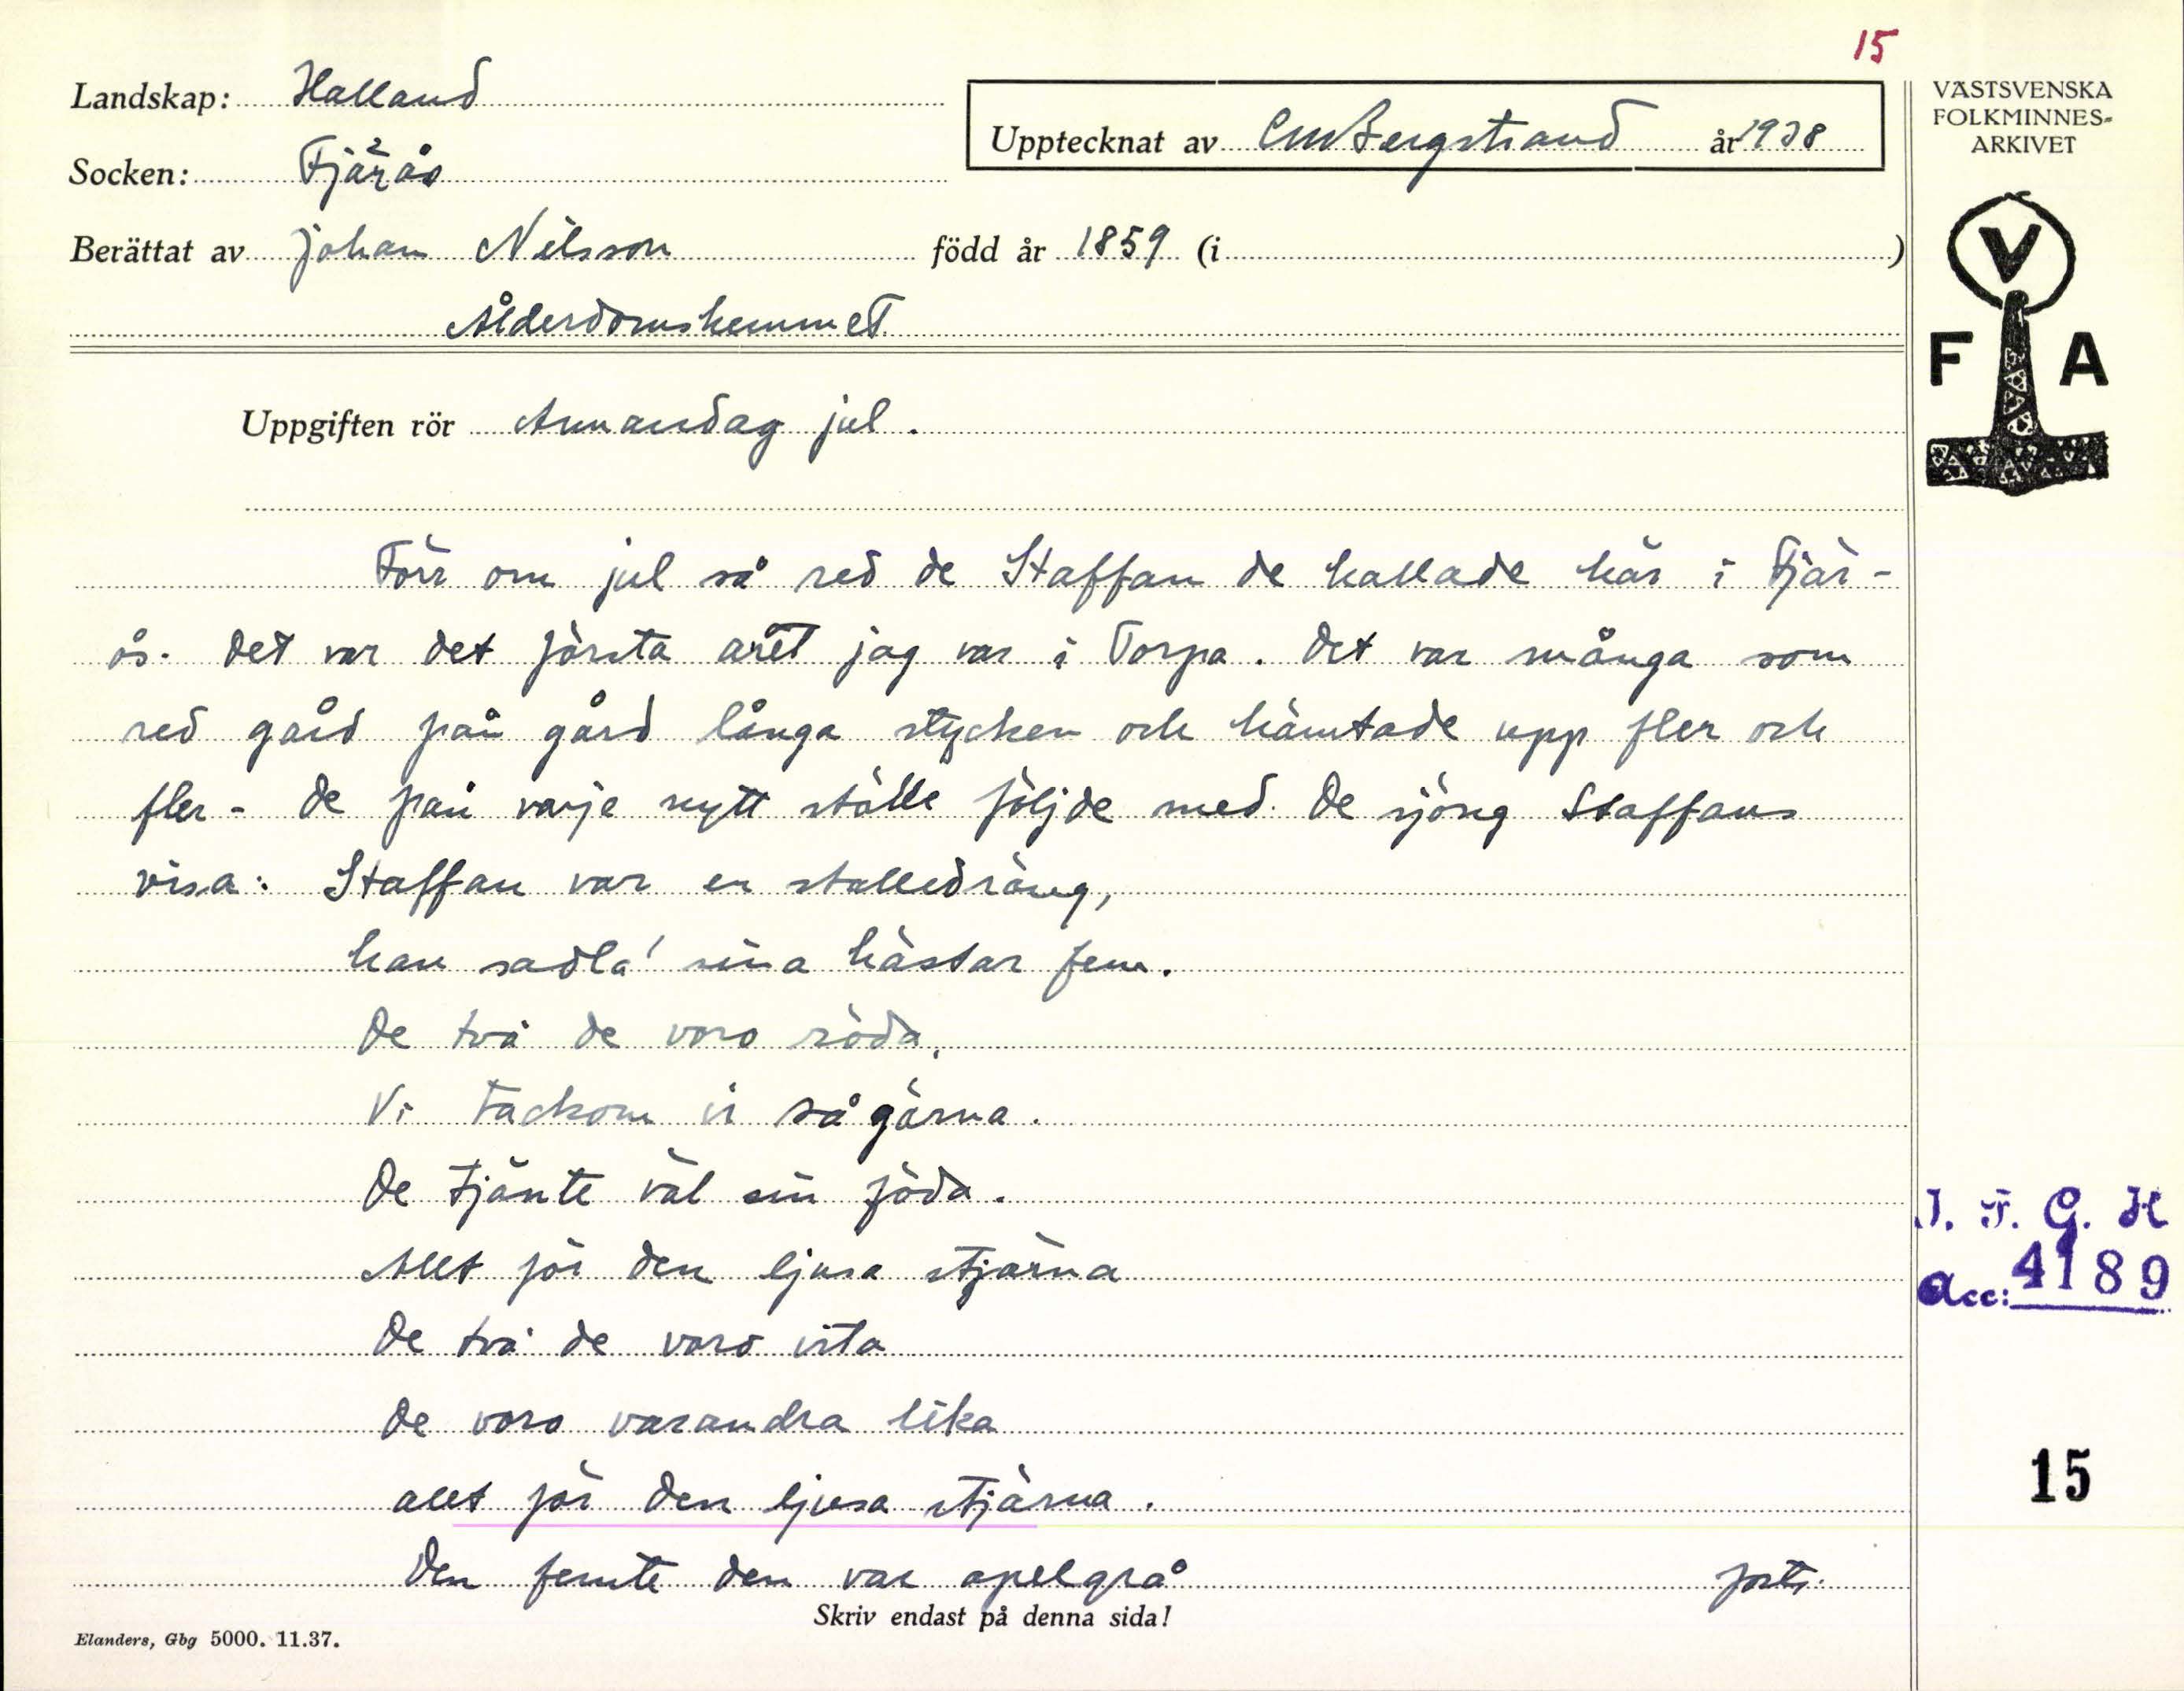 15
Landskap: Halland
Upptecknat av CMBergstrand år 1938
Socken: Fjärås
Berättat av Johan Nilsson född år 1859 (i )
Ålderdomshemmet
Uppgiften rör Annandag jul.
Förr om jul så red de Staffan de kallade här i Fjär-
ås. Det var det första året jag var i Torpa. Det var många som
red gård från gård långa stycken och hämtade upp fler och
fler - de från varje nytt ställe följde med. De sjöng Staffans
visa: Staffan var en stalledräng,
han sadla' sina hästar fem.
De två de voro röda,
Vi tackom vi så gärna.
De tjänte väl sin föda.
Allt för den ljusa stjärna
De två de voro vita
de voro varandra lika
allt för den ljusa stjärna.
Den femte den var apelgrå
forts.
Skriv endast på denna sida!
Elanders, Gbg 5000. 11.37.
VÄSTSVENSKA
FOLKMINNES-
ARKIVET
V
F A
I. F. G. H
Acc: 4189
15